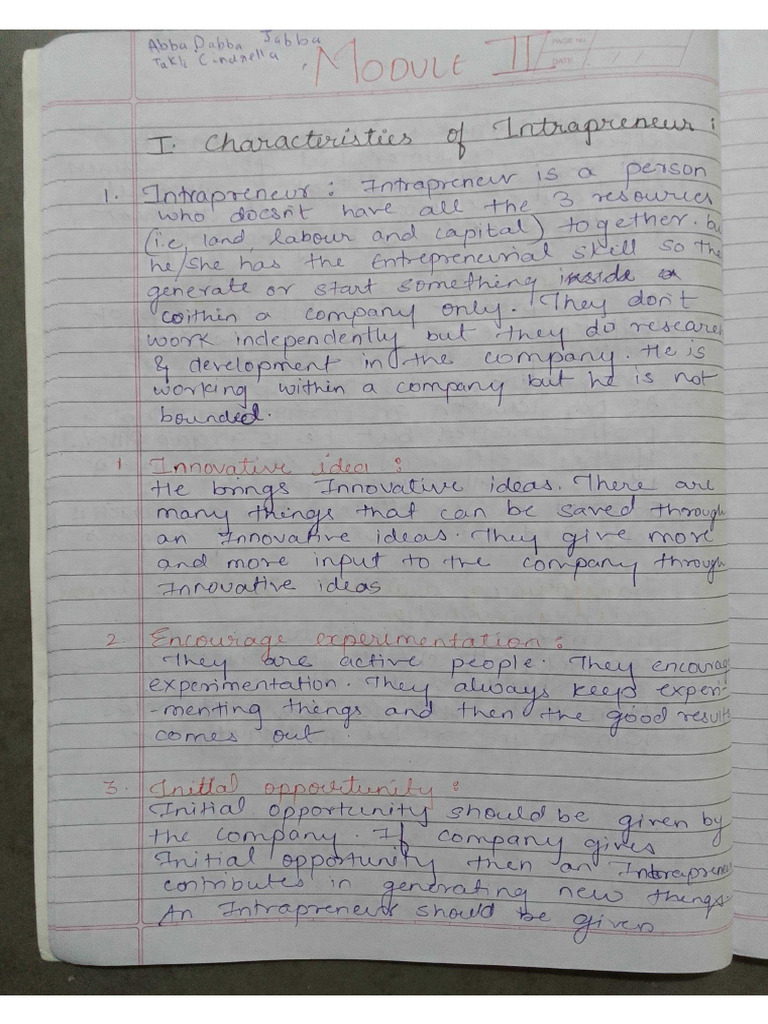 Abba Dabba Jabba
Takli Cindrella
MODULE II
PAGE No.
DATE
I. Characteristics of Intrapreneur:
1. Intrapreneur: Intrapreneur is a person
who doesn't have all the 3 resources
(i.e, land, labour and capital) together. bu
he/she has the Entrepreneurial skill so the
generate or start something inside or
within a company only. They don't
work independently but they do researc
& development in the company. He is
working within a company but he is not
bounded.
1 Innovative idea:
He brings Innovative ideas. There are
many things that can be saved through
an Innovative ideas. They give more
and more input to the company through
Innovative ideas
2. Encourage experimentation:
They are active people. They encourag
experimentation. They always keep experi-
-menting things and then the good results
comes out.
3. Initial opportunity:
Initial opportunity should be given by
the company. If company gives
Initial opportunity then an Intrapreneu
contributes in generating new things.
An Intrapreneur should be given